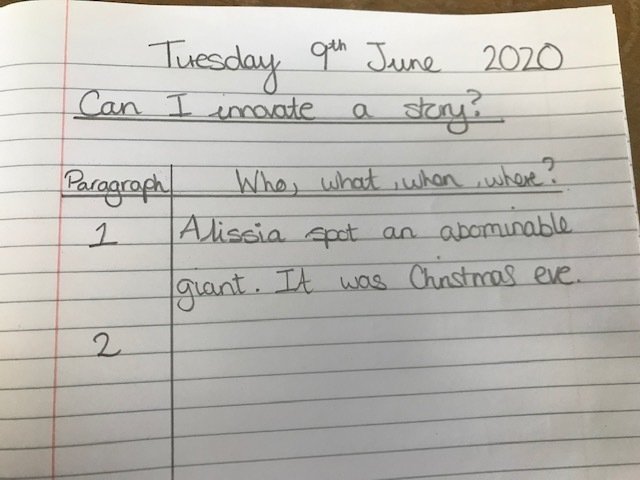 Tuesday 9th June 2020
Can I innovate a story?
Paragraph Who, what, when, where?
1 Alissia spot an abominable
giant. It was Christmas eve.
2